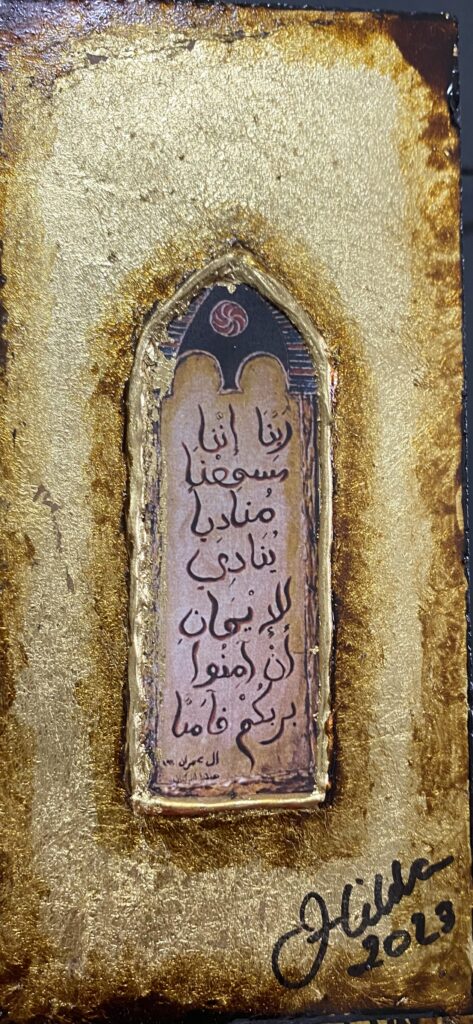 رَبَّنَا إِنَّنَا
سَمِعْنَا
مُنَادِيا
يُنَادِي
لِلإِيْمَانِ
أَنْ آمِنُوا
بِرَبِّكُمْ فَآمَنَّا
آل عمران
Hilda
2023